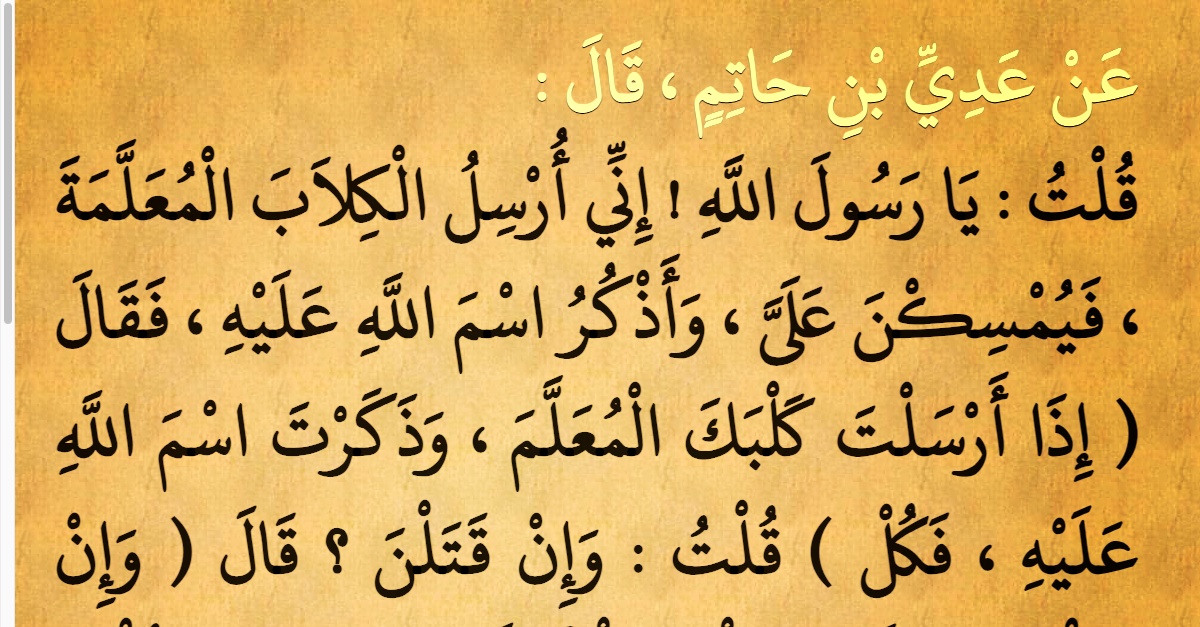 عَنْ عَدِيِّ بْنِ حَاتِمٍ ، قَالَ :
قُلْتُ : يَا رَسُولَ اللَّهِ ! إِنِّي أُرْسِلُ الْكِلاَبَ الْمُعَلَّمَةَ
، فَيُمْسِكْنَ عَلَىَّ ، وَأَذْكُرُ اسْمَ اللَّهِ عَلَيْهِ ، فَقَالَ
( إِذَا أَرْسَلْتَ كَلْبَكَ الْمُعَلَّمَ ، وَذَكَرْتَ اسْمَ اللَّهِ
عَلَيْهِ ، فَكُلْ ) قُلْتُ : وَإِنْ قَتَلْنَ ؟ قَالَ ( وَإِنْ